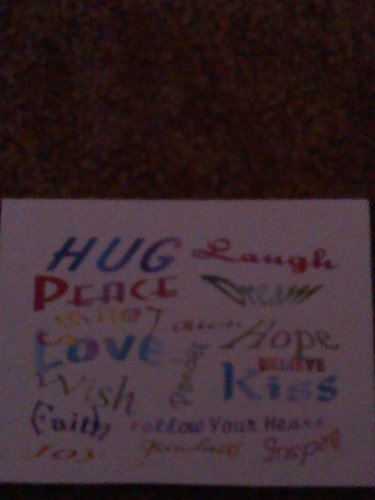 HUG Laugh
PEACE Dream
Smile
Hope
Love BELIEVE
Wish Kiss
Faith Follow Your Heart
Joy Kindness Inspire